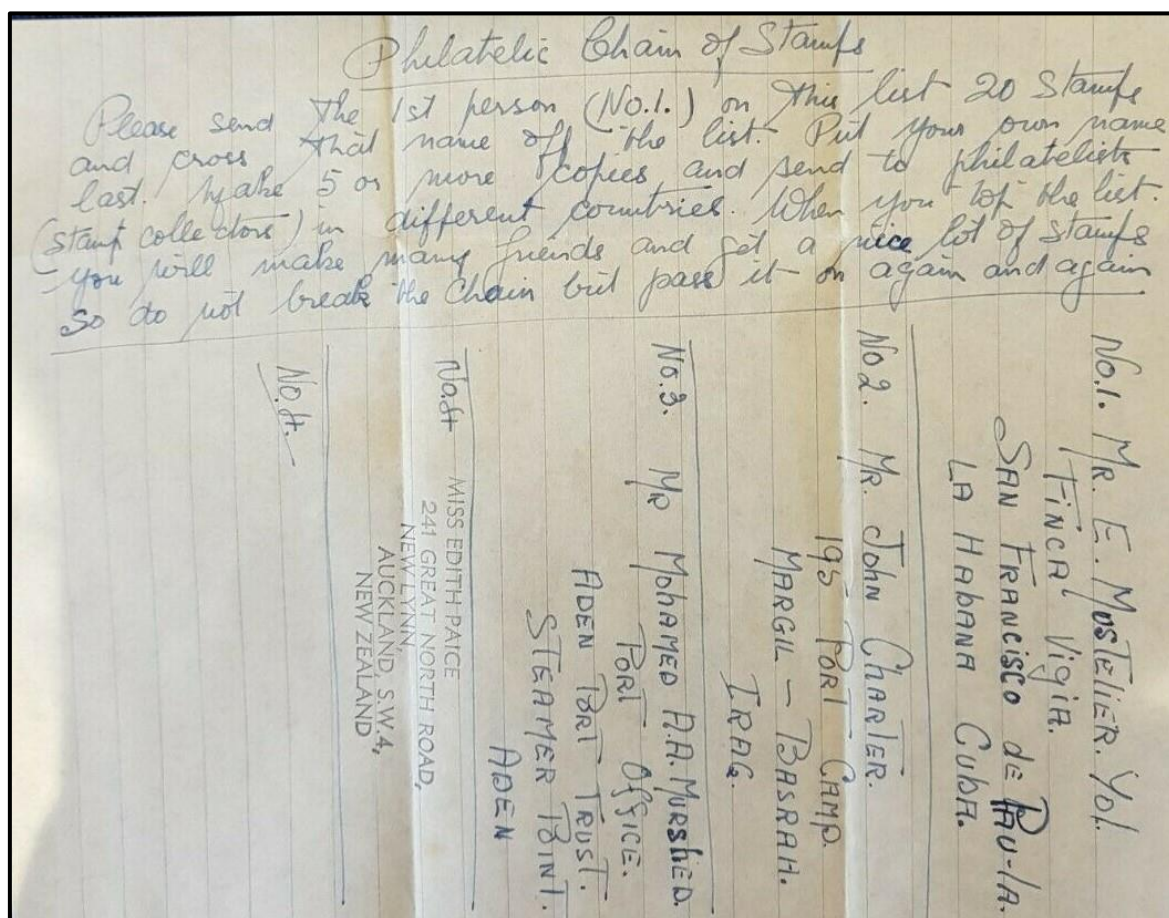 Philatelic Chain of Stamps
Please send the 1st person (No.1.) on this list 20 Stamps
and cross that name off the list. Put your own name
last. Make 5 or more copies and send to philatelists
(stamp collectors) in different countries. When you top the list.
you will make many friends and get a nice lot of stamps
so do not break the chain but pass it on again and again
No.1. Mr. E. Mostelier. Yol.
Finca Vigia.
San Francisco de Pau-la.
La Habana Cuba.
No 2. Mr. John Charter.
195 Port Camp.
Margil - Basrah.
Iraq.
No.3. Mr Mohamed A.A. Murshed.
Port Office.
Aden Port Trust.
Steamer Point.
Aden
No.4 MISS EDITH PAICE
241 GREAT NORTH ROAD,
NEW LYNN,
AUCKLAND, S.W.4,
NEW ZEALAND
No.4.